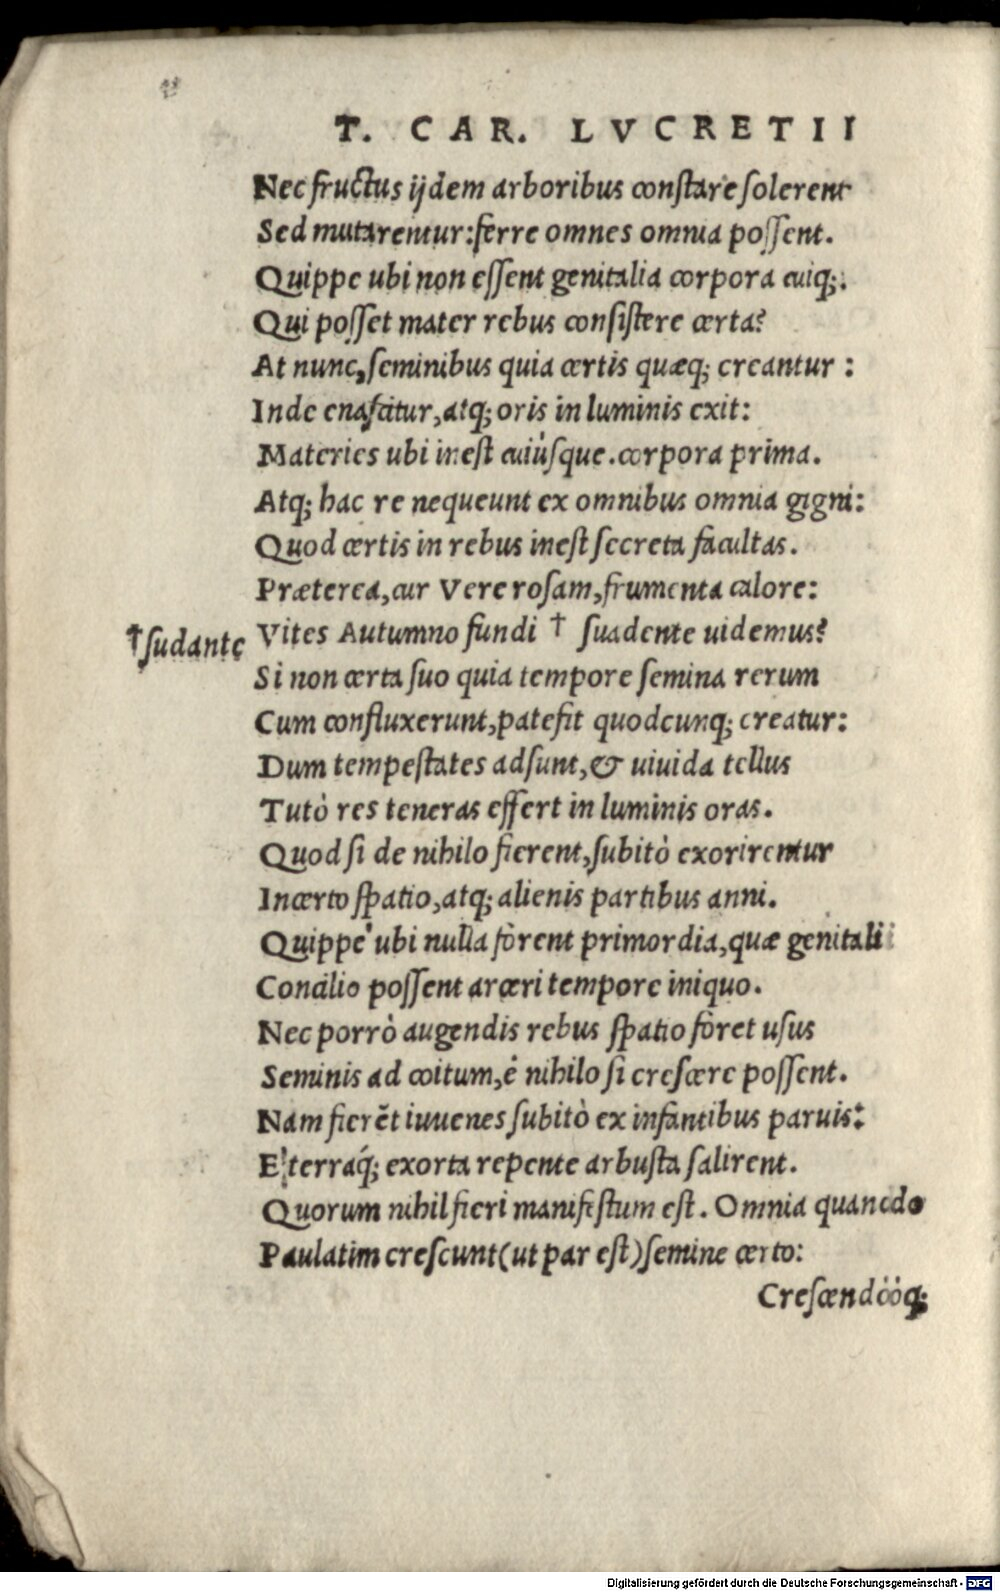 T. CAR. LVCRETII
Nec fructus ijdem arboribus constare solerent
Sed mutarentur: ferre omnes omnia possent.
Quippe ubi non essent genitalia corpora cuiq;.
Qui posset mater rebus consistere certa?
At nunc, seminibus quia certis quæq; creantur :
Inde enascitur, atq; oris in luminis exit:
Materies ubi inest cuiúsque. corpora prima.
Atq; hac re nequeunt ex omnibus omnia gigni:
Quod certis in rebus inest secreta facultas.
Præterea, cur Vere rosam, frumenta calore:
†sudante Vites Autumno fundi † suadente uidemus?
Si non certa suo quia tempore semina rerum
Cum confluxerunt, patefit quodcunq; creatur:
Dum tempestates adsunt, & uiuida tellus
Tutò res teneras effert in luminis oras.
Quod si de nihilo fierent, subitò exorirentur
Incerto spatio, atq; alienis partibus anni.
Quippe ubi nulla forent primordia, quæ genitali
Concilio possent arceri tempore iniquo.
Nec porrò augendis rebus spatio foret usus
Seminis ad coitum, è nihilo si crescere possent.
Nam fierēt iuuenes subitò ex infantibus paruis:
E terraq́; exorta repente arbusta salirent.
Quorum nihil fieri manifestum est. Omnia quando
Paulatim crescunt (ut par est) semine certo:
Crescendóq;
Digitalisierung gefördert durch die Deutsche Forschungsgemeinschaft - DFG